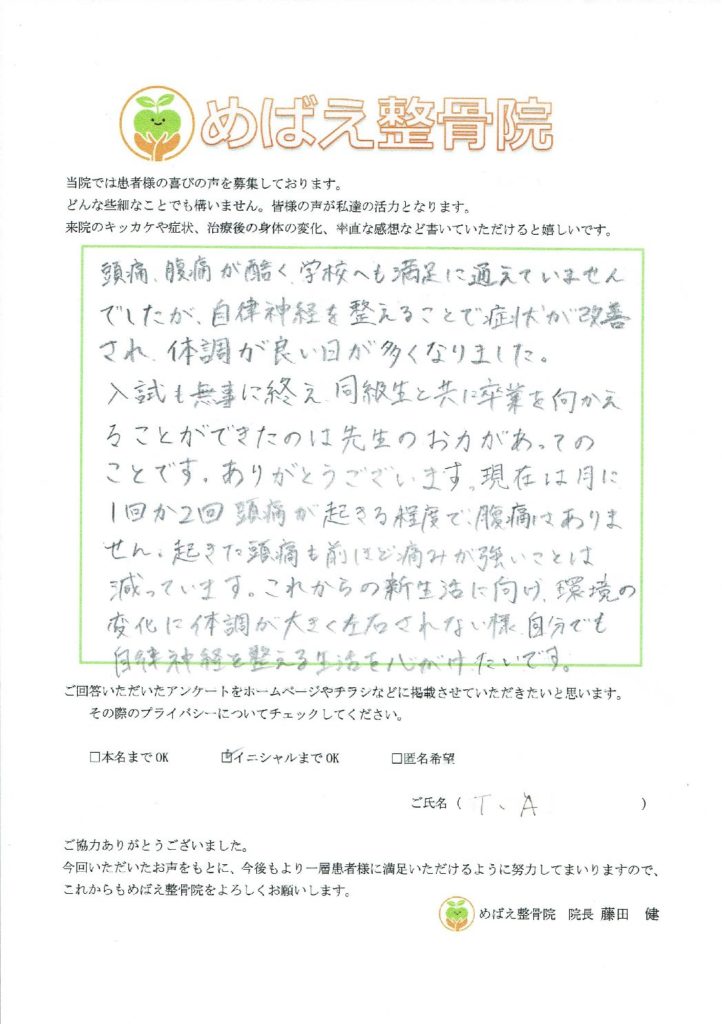 めばえ整骨院
当院では患者様の喜びの声を募集しております。
どんな些細なことでも構いません。皆様の声が私達の活力となります。
来院のキッカケや症状、治療後の身体の変化、率直な感想など書いていただけると嬉しいです。
頭痛、腹痛が酷く、学校へも満足に通えていません
でしたが、自律神経を整えることで症状が改善
され、体調が良い日が多くなりました。
入試も無事に終え、同級生と共に卒業を向かえ
ることができたのは先生のお力があっての
ことです。ありがとうございます。現在は月に
1回か2回頭痛が起きる程度で、腹痛はありま
せん。起きた頭痛も前ほど痛みが強いことは
減っています。これからの新生活に向け、環境の
変化に体調が大きく左右されない様、自分でも
自律神経を整える生活を心がけたいです。
ご回答いただいたアンケートをホームページやチラシなどに掲載させていただきたいと思います。
その際のプライバシーについてチェックしてください。
□本名までOK ☑イニシャルまでOK □匿名希望
ご氏名（ T、A ）
ご協力ありがとうございました。
今回いただいたお声をもとに、今後もより一層患者様に満足いただけるように努力してまいりますので、
これからもめばえ整骨院をよろしくお願いします。
めばえ整骨院 院長 藤田 健